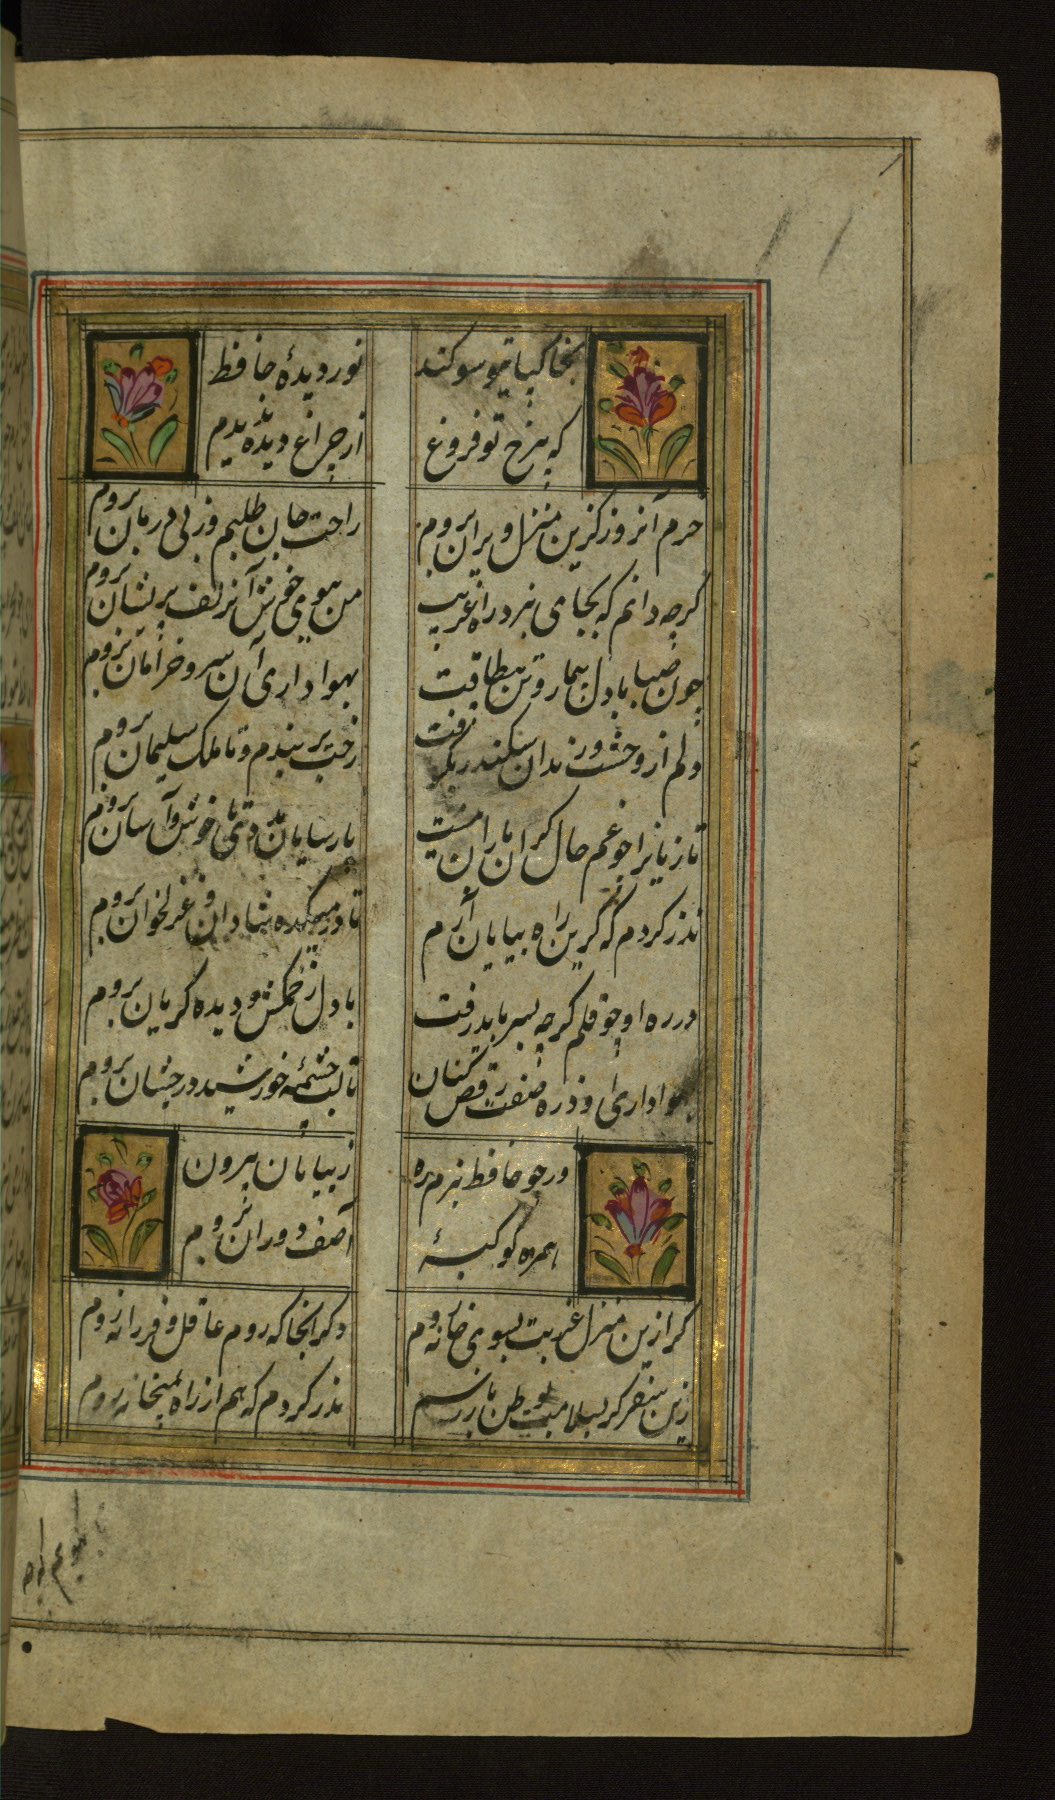 بخاکپایتو سوکند نور دیدۀ حافظ
که بیرخ تو فروغ از چراغ دیده ندیدم
خرم آنروز کزین منزل ویران بروم راحت جان طلبم وز پی درمان بروم
کرچه دانم که بجامی نبرد راه غریب من ببوی خوش آنزلف پریشان بروم
چون صبا بادل بیمار و تن بیطاقت بهواداری آن سرو خرامان بروم
دلم از وحشت زندان سکندر بگرفت رخت بربندم و تا ملک سلیمان بروم
تازیانرا چو غم حال کران باران نیست پارسایان مددی تا خوش و آسان بروم
نذر کردم که کرین راه بپایان آرم تا در میکده شادان و غزلخوان بروم
در ره او چو قلم کرچه بسر باید رفت بادل زخمکش و دیده کریان بروم
بهواداری او ذره صفت رقص کنان تا لب چشمۀ خورشید درخشان بروم
ور چو حافظ نبرم ره زبیابان بیرون
همره کوکبۀ آصف دوران بروم
کرازین منزل غربت بسوی خانه روم دکر آنجا که روم عاقل و فرزانه روم
زین سفر کر بسلامت بوطن باز رسم نذر کردم که هم از راه بمیخانه روم